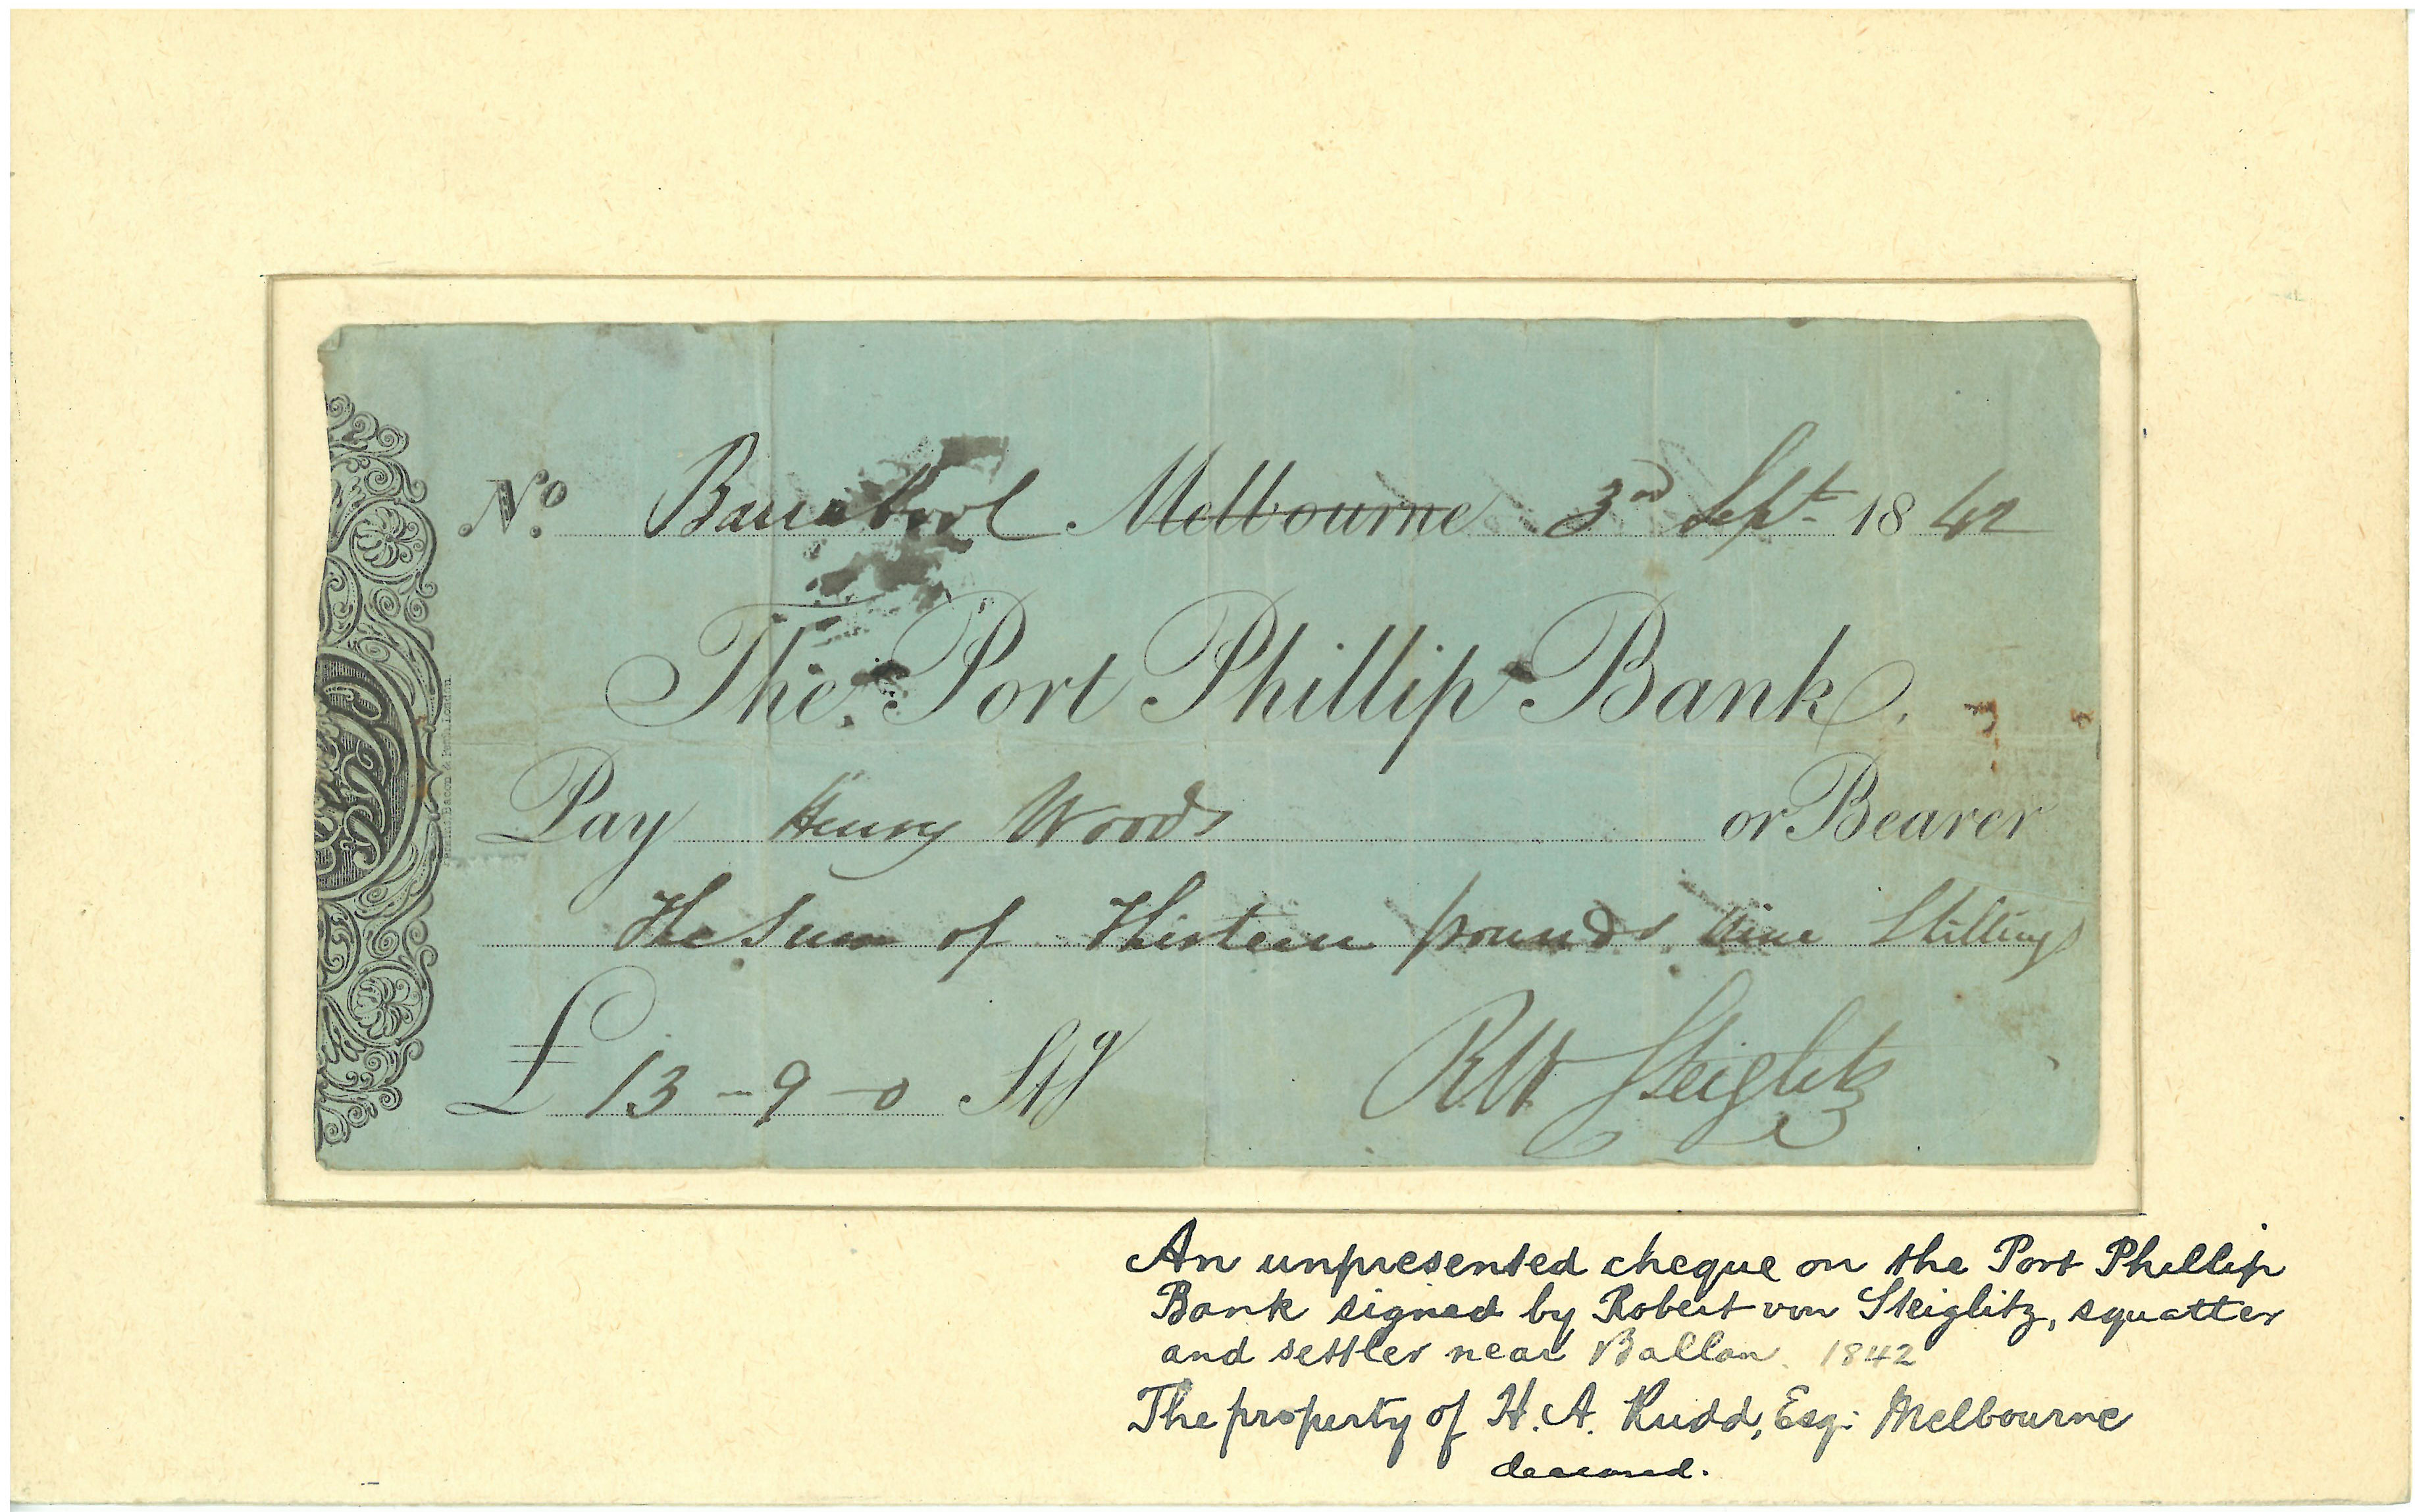 No. Barrabool Melbourne 3rd Sept. 1842
The Port Phillip Bank.
Pay Henry Woods or Bearer
The Sum of Thirteen pounds Nine Shillings
£ 13 - 9 - 0 Stg RW Steiglitz
Bacon & London
An unpresented cheque on the Port Phillip
Bank signed by Robert von Steiglitz, squatter
and settler near Ballan. 1842
The property of H. A. Rudd, Esq: Melbourne
deceased.